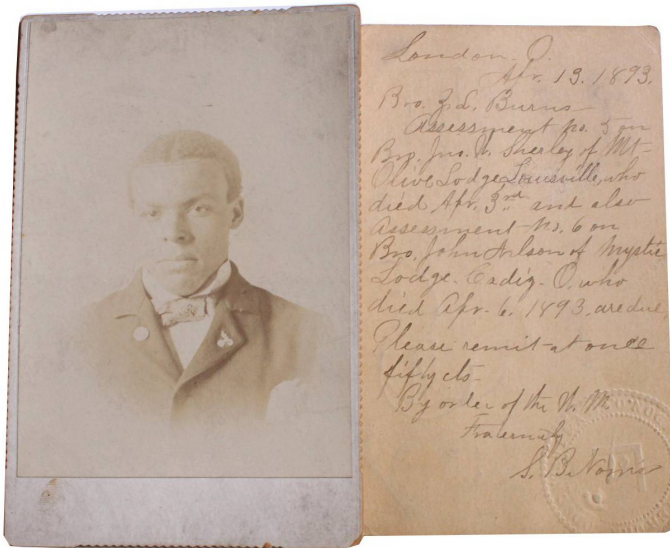 London. O.
Apr. 13. 1893.
Bro. Z. L. Burns
Assessment No. 5 on
Bro. Jno. Sherley of Mt-
Olive Lodge Linusville, who
died Apr. 3rd and also
Assessment No. 6 on
Bro. John Nelson of Mystic
Lodge. Cadiz. O. who
died Apr. 6. 1893, are due
Please remit at once
fifty cts.
By order of the
Fraternity
S. B. Norris